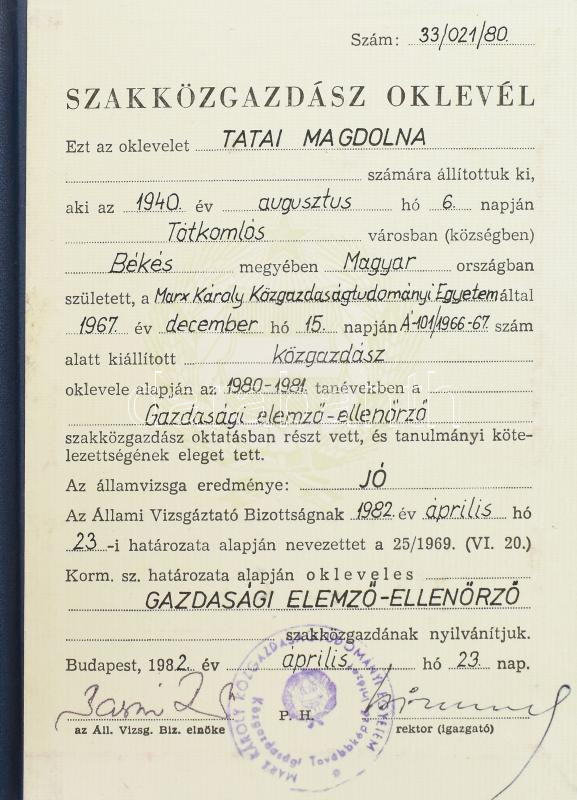 Szám: 33/021/80.
SZAKKÖZGAZDÁSZ OKLEVÉL
Ezt az oklevelet TATAI MAGDOLNA
számára állítottuk ki,
aki az 1940. év augusztus hó 6. napján
Tótkomlós városban (községben)
Békés megyében Magyar országban
született, a Marx Károly Közgazdaságtudományi Egyetem által
1967. év december hó 15. napján Á-101/1966-67. szám
alatt kiállított közgazdász
oklevele alapján az 1980-1981. tanévekben a
Gazdasági elemző-ellenőrző
szakközgazdász oktatásban részt vett, és tanulmányi köte-
lezettségének eleget tett.
Az államvizsga eredménye: JÓ
Az Állami Vizsgáztató Bizottságnak 1982 év április hó
23 -i határozata alapján nevezettet a 25/1969. (VI. 20.)
Korm. sz. határozata alapján okleveles
GAZDASÁGI ELEMZŐ-ELLENŐRZŐ
szakközgazdának nyilvánítjuk.
Budapest, 1982. év április hó 23. nap.
P. H.
az Áll. Vizsg. Biz. elnöke rektor (igazgató)
MARX KÁROLY KÖZGAZDASÁGTUDOMÁNYI EGYETEM
Közgazdasági Továbbképző Intézet